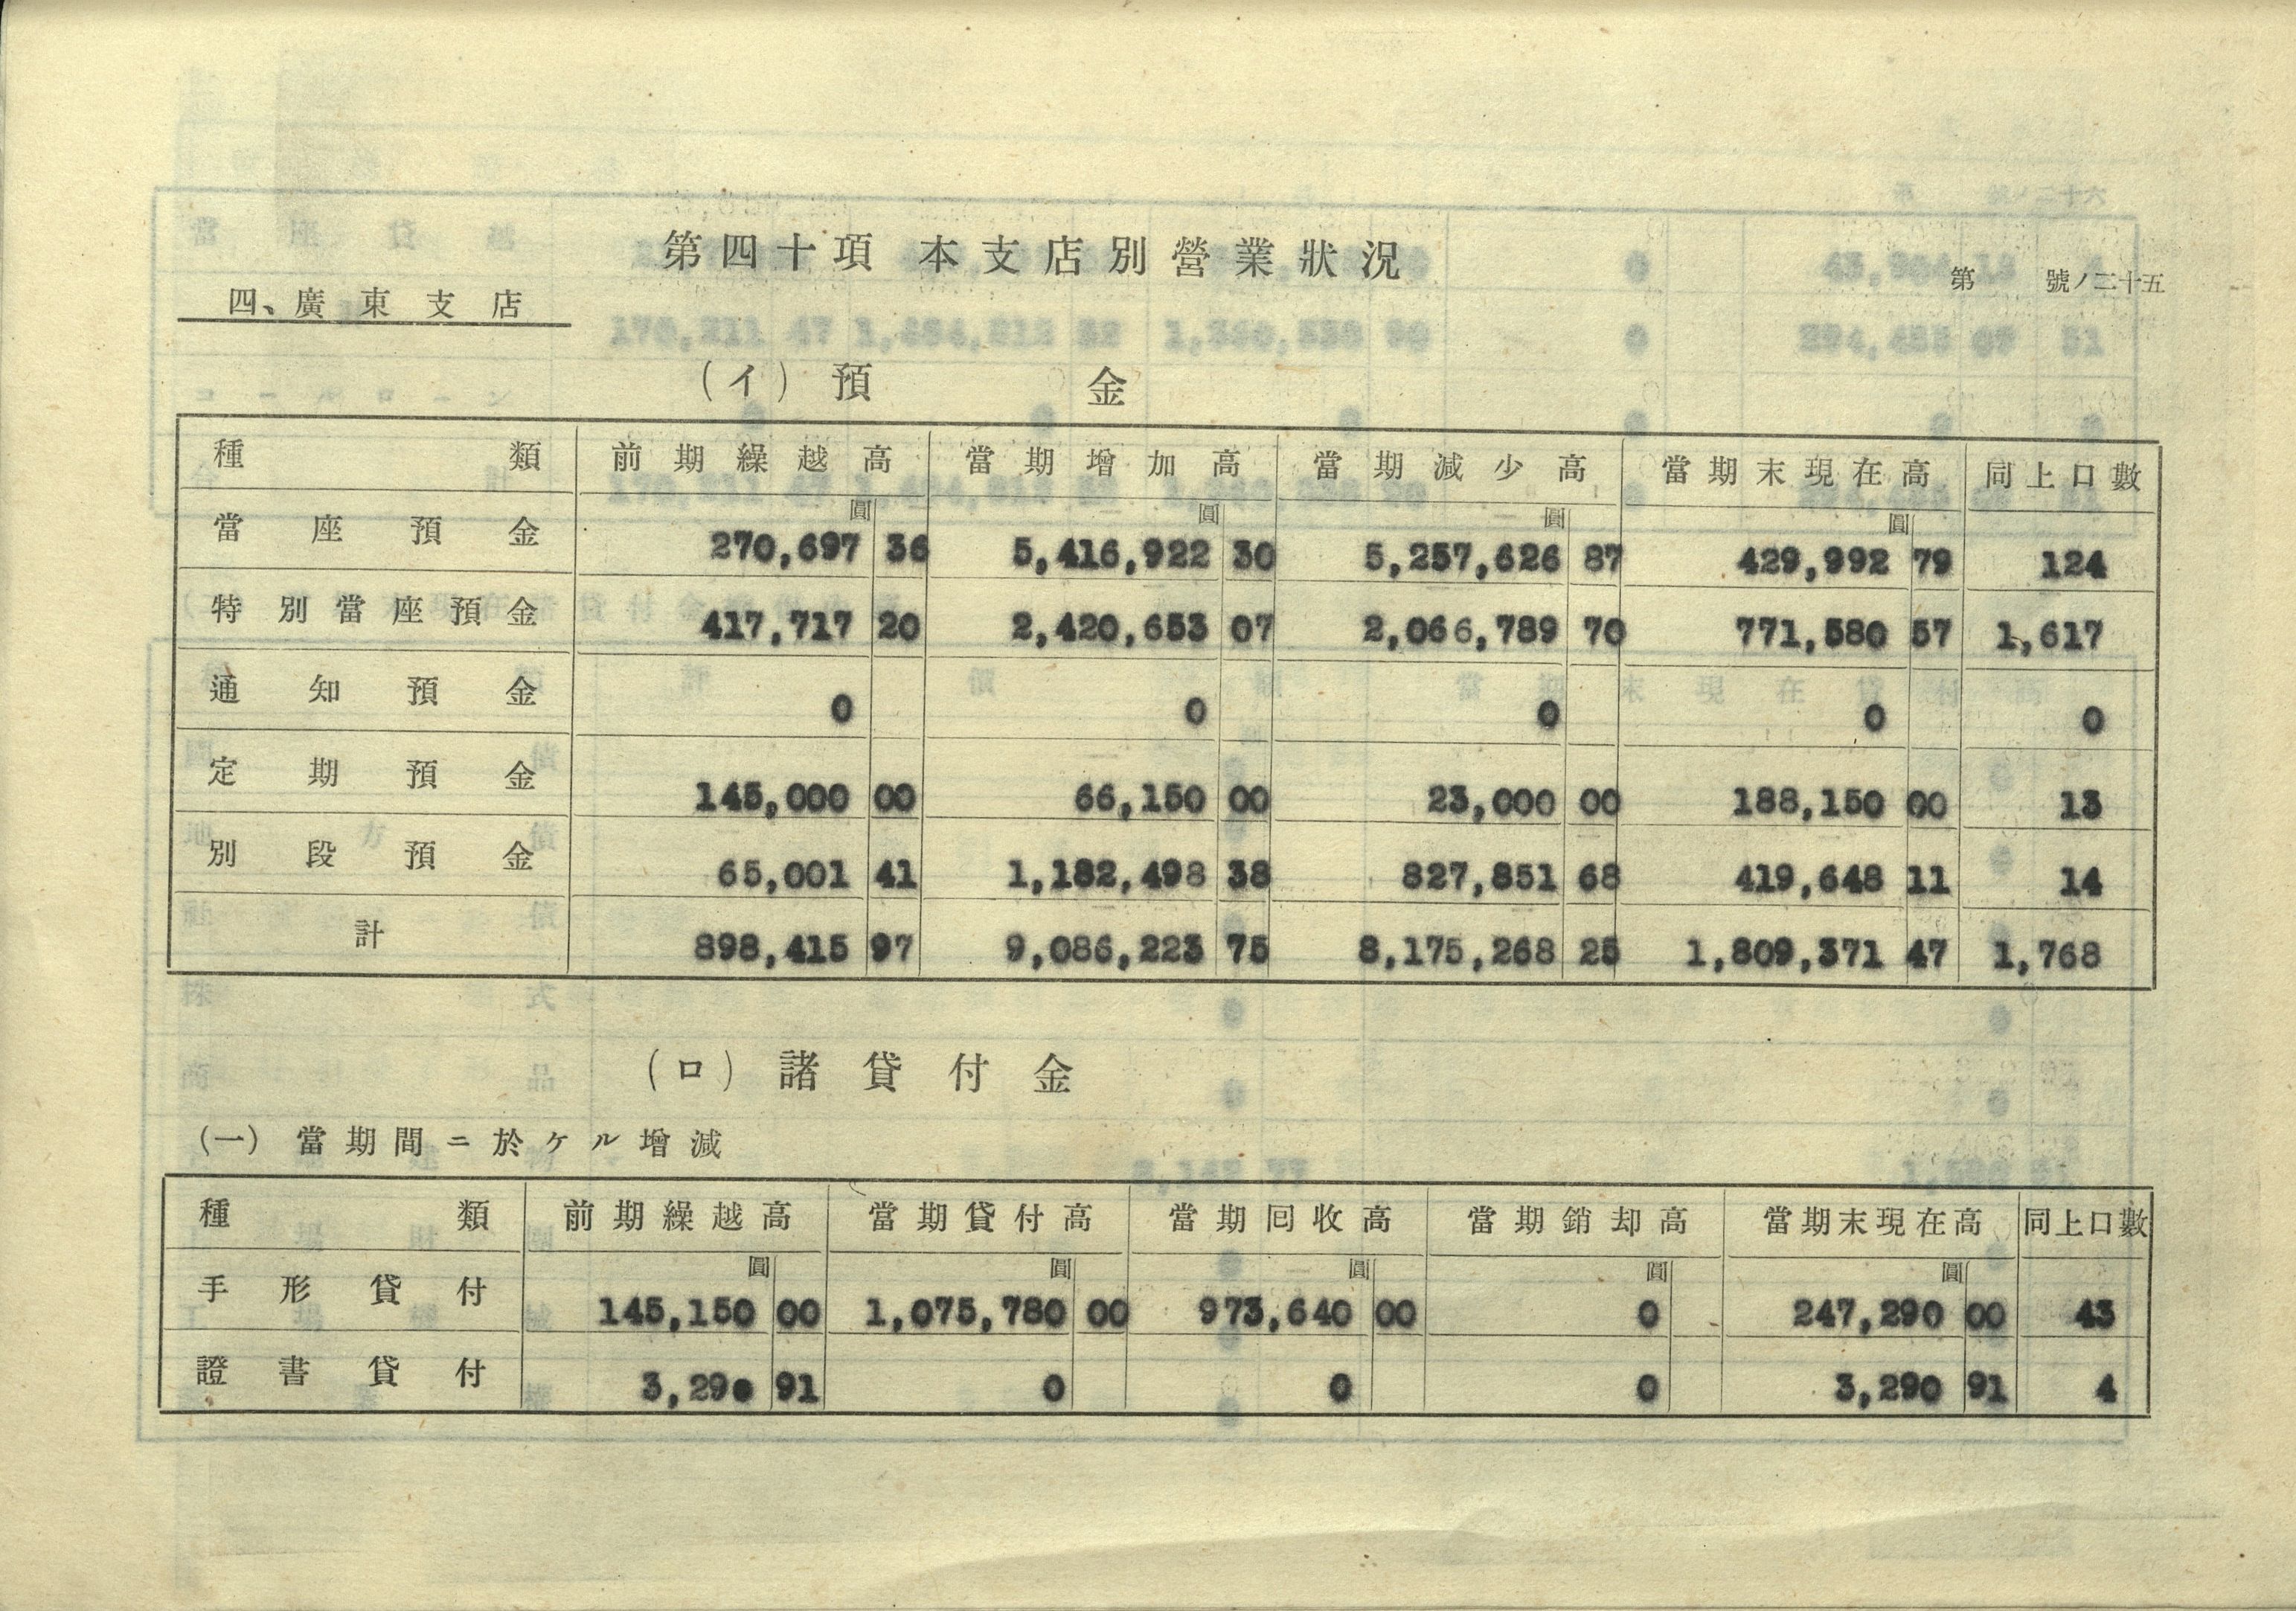 第四十項 本支店別營業狀況
第 號ノ二十五
四、廣東支店
(イ) 預金
種類 前期繰越高 當期增加高 當期減少高 當期末現在高 同上口數
圓 圓 圓 圓
當座預金 270,697 36 5,416,922 30 5,257,626 87 429,992 79 124
特別當座預金 417,717 20 2,420,653 07 2,066,789 70 771,580 57 1,617
通知預金 0 0 0 0 0
定期預金 145,000 00 66,150 00 23,000 00 188,150 00 13
別段預金 65,001 41 1,182,498 38 827,851 68 419,648 11 14
計 898,415 97 9,086,223 75 8,175,268 25 1,809,371 47 1,768
(ロ) 諸貸付金
(一) 當期間ニ於ケル增減
種類 前期繰越高 當期貸付高 當期回收高 當期銷却高 當期末現在高 同上口數
圓 圓 圓 圓 圓
手形貸付 145,150 00 1,075,780 00 973,640 00 0 247,290 00 43
證書貸付 3,290 91 0 0 0 3,290 91 4